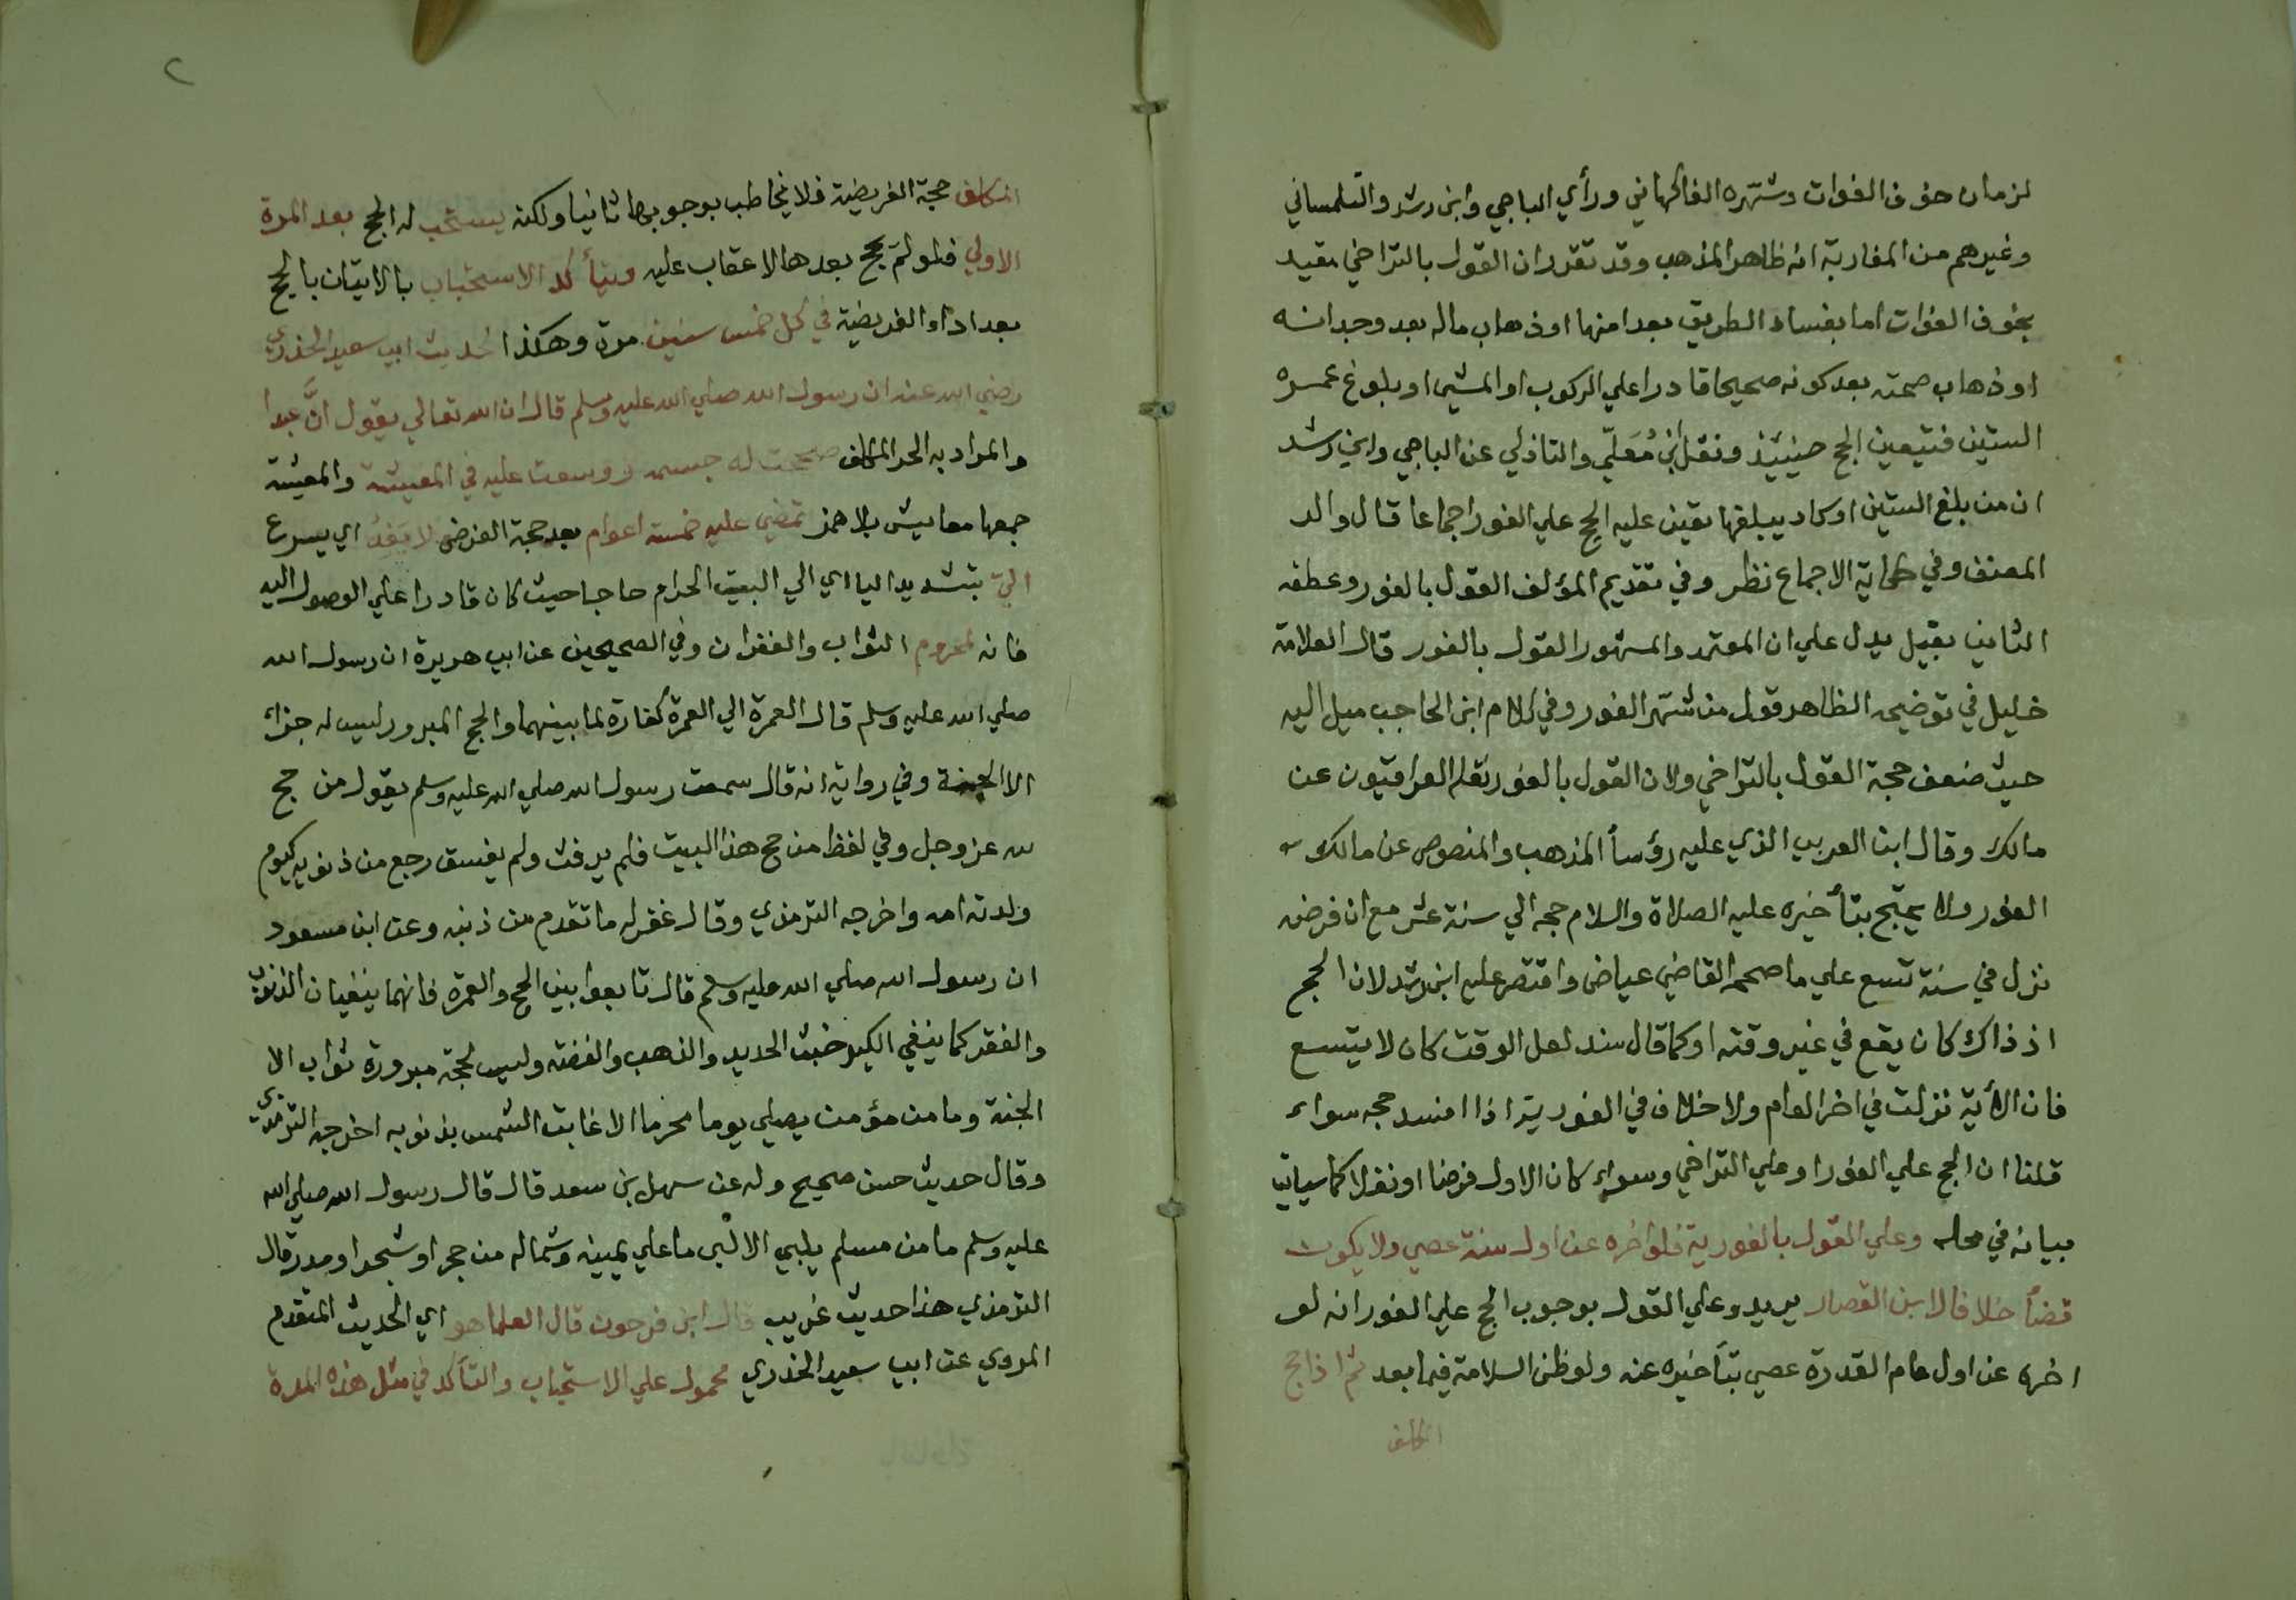 لزمان خوف الفوات وشهره الفاكهاني ورأي الباجي وابن رشد والتلمساني
وغيرهم من المغاربة انه ظاهر المذهب وقد تقرر ان القول بالتراخي مقيد
بخوف الفوات اما بفساد الطريق بعد امنها او ذهاب ماله بعد وجدانه
او ذهاب صحته بعد كونه صحيحا قادرا علي الركوب او المشي او بلوغ عمره
الستين فتيعين الحج حينئذ ونقل ابن مُعَلّي والتادلي عن الباجي وابن رشد
ان من بلغ الستين او كاد يبلغها تعين عليه الحج علي الفور اجماعا قال والد
المصنف وفي حكاية الاجماع نظر وفي تقديم المؤلف القول بالفور وعطفه
الثاني بقيل يدل علي ان المعتمد والمشهور القول بالفور قال العلامة
خليل في توضيحه الظاهر قول من شهر الفور وفي كلام ابن الحاجب ميل اليه
حيث ضعف حجة القول بالتراخي ولان القول بالفور نقله العراقيون عن
مالك وقال ابن العربي الذي عليه رؤسأ المذهب والمنصوص عن مالك
الفور ولا يحتج بتأخيره عليه الصلاة والسلام حجه الي سنة عشر مع ان فرضه
نزل في سنة تسع علي ما صححه القاضي عياض واقتصر عليه ابن رشد لان الحج
اذ ذاك كان يقع في غير وقته او كما قال سند لعل الوقت كان لا يتسع
فان الأية نزلت في اخر العام ولا خلاف في الفورية اذا افسد حجه سواء
قلنا ان الحج علي الفور او علي التراخي وسواء كان الاول فرضا او نفلا كما سياتي
بيانه في محله وعلي القول بالفورية فلو اخره عن اول سنة عصي ولا يكون
قضأ خلافا لابن القصار يريد وعلي القول بوجوب الحج علي الفور انه لو
اخره عن اول عام القدرة عصي بتأخيره عنه ولو ظن السلامة فيما بعد ثم اذا حج
المكلف
٢
المكلف حجة الفريضة فلا يخاطب بوجوبها ثانيا ولكنه يستحب له الحج بعد المرة
الاولي فلو لم يحج بعدها لا عقاب عليه ويتأكد الاستحباب بالاتيان بالحج
بعد اداء الفريضة في كل خمس سنين مرة وهكذا لحديث ابي سعيد الخدري
رضي الله عنه ان رسول الله صلي الله عليه وسلم قال ان الله تعالي يقول انَّ عبدا
والمراد به الحر المكلف صححت له جسمه ووسعت عليه في المعيشة والمعيشة
جمعها معايش بلا همز تمضي عليه خمسة اعوام بعد حجة الفرض لا يَفِدُ اي يسرع
اليّ بتشديد اليا اي الي البيت الحرام حاجا حيث كان قادرا علي الوصول اليه
فانه لمحروم الثواب والغفران وفي الصحيحين عن ابي هريرة ان رسول الله
صلي الله عليه وسلم قال العمرة الي العمرة كفارة لما بينهما والحج المبرور ليس له جزاء
الا الجنة وفي رواية انه قال سمعت رسول الله صلي الله عليه وسلم يقول من حج
لله عز وجل وفي لفظ من حج هذا البيت فلم يرفث ولم يفسق رجع من ذنوبه كيوم
ولدته امه واخرجه الترمذي وقال غفر له ما تقدم من ذنبه وعن ابن مسعود
ان رسول الله صلي الله عليه وسلم قال تابعوا بين الحج والعمرة فانهما ينفيان الذنوب
والفقر كما ينفي الكير خبث الحديد والذهب والفضة وليس لحجة مبرورة ثواب الا
الجنة وما من مؤمن يصلي يوما محرما الا غابت الشمس بذنوبه اخرجه الترمذي
وقال حديث حسن صحيح وله عن سهل بن سعد قال قال رسول الله صلي الله
عليه وسلم ما من مسلم يلبي الا لبى ما علي يمينه وشماله من حجر او شجر او مدر قال
الترمذي هذا حديث غريب قال ابن فرحون قال العلما هو اي الحديث المتقدم
المروي عن ابي سعيد الخدري محمول علي الاستحباب والتأكد في مثل هذه المدة